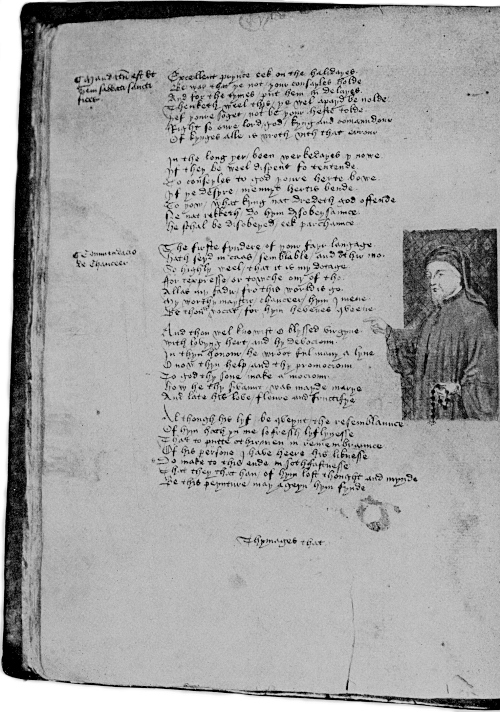 ¶ Mandatu est vt
diem sabbati sancti
ficet
Excellent prynce eek on the halidayes
Be war that ye not your conseyles holde
And for the tymes put hem in delayes
Thenketh weel this ye wel apayd be nolde
If youre soget not be your heste tolde
Right so owre lord god kyng and comandour
Of kynges alle is wroth with that errour
In the long yer been werkedayes ynowe
If they be weel dispent for tentende
To conseyles to god youre herte bowe
If ye desyre mennys hertis bende
To yow what kyng nat dredeth god offende
Ne nat rekketh do hym disobeysaunce
He schal be disobeyed eek parchaunce
¶ Commendacio
de Chaucer
The firste fyndere of our fayr langage
Hath seyd in caas semblable and othir mo
So highly weel that it is my dotage
For texpresse or touche any of tho
Allas my fadir fro this world is go
My worthy maystir chaucer hym I mene
Be thou aduocat for hym heuenes qweene
And thou wel knowist o blyssed virgyne
With lovyng hert and hy devocioun
In thyn honour he wroot ful many a lyne
O now thyn help and thy promocioun
To god thy sone make a mocioun
How he thy servaunt was mayde marye
And late his love floure and fructifye
Al though his lyf be qweynt the resemblaunce
Of hym hath in me so fressh lyflynesse
That to putte othir men in remembraunce
Of his persone I haue heere his liknesse
Do make to this ende in sothfastnesse
That they that han of hym lost thought and mynde
Be this peynture may ageyn hym fynde
Thymages that